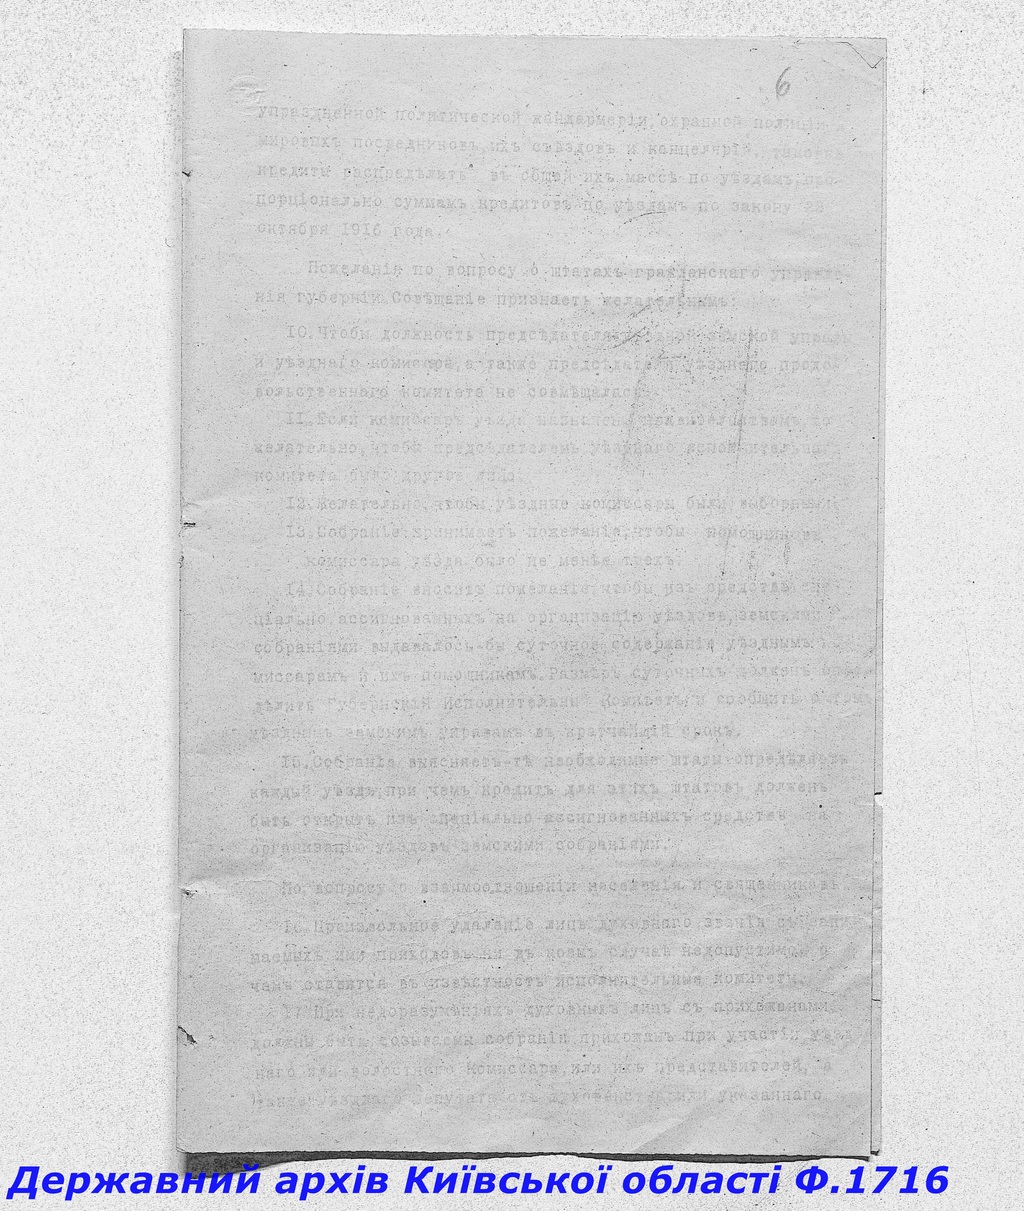 6
упраздненной политической жандармеріи, охранной полиціи
мировыхъ посредниковъ, ихъ съѣздовъ и канцелярій,
кредиты распредѣлять въ общей ихъ массѣ по уѣздамъ, про-
порціонально суммамъ кредитовъ по уѣздамъ по закону 28
октября 1916 года.
Пожеланія по вопросу о штатахъ гражданскаго управле-
нія губерніи. Совѣщаніе признаетъ желательнымъ:
10. Чтобы должность предсѣдателя уѣздной земской управы
и уѣзднаго комиссара, а также предсѣдателя уѣзднаго продо-
вольственнаго комитета не совмѣщалась.
11. Если комиссаръ уѣзда назначенъ правительствомъ, то
желательно, чтобы предсѣдателемъ уѣзднаго исполнительнаго
комитета было другое лицо.
12. Желательно, чтобы уѣздные комиссары были выборными
13. Собраніе принимаетъ пожеланіе, чтобы помощниковъ
комиссара уѣзда было не менѣе трехъ.
14. Собраніе вноситъ пожеланіе, чтобы изъ средствъ спе-
ціально ассигнованныхъ на организацію уѣздовъ земскими
собраніями выдавалось-бы суточное содержаніе уѣзднымъ ко-
миссарамъ и ихъ помощникамъ. Размѣръ суточныхъ долженъ опре-
дѣлить Губернскій Исполнительный Комитетъ и сообщить о томъ
уѣзднымъ земскимъ управамъ въ кратчайшій срокъ.
15. Собраніе выясняетъ-тѣ необходимые штаты опредѣляетъ
каждый уѣздъ, при чемъ кредитъ для этихъ штатовъ долженъ
быть открытъ изъ спеціально ассигнованныхъ средствъ на
организацію уѣздовъ земскими собраніями.
По вопросу о взаимоотношеніи населенія и священниковъ.
16. Произвольное удаленіе лицъ духовнаго званія
ими приходовъ ни въ коемъ случаѣ недопустимо, о
чемъ ставится въ извѣстность исполнительные комитеты.
17. При недоразумѣніяхъ духовныхъ лицъ съ прихожанами,
должны быть созываемы собранія прихожанъ при участіи уѣзд-
наго или волостного Комиссара, или ихъ представителей, а
депутата отъ духовенства или указаннаго
Державний архів Київської області Ф.1716